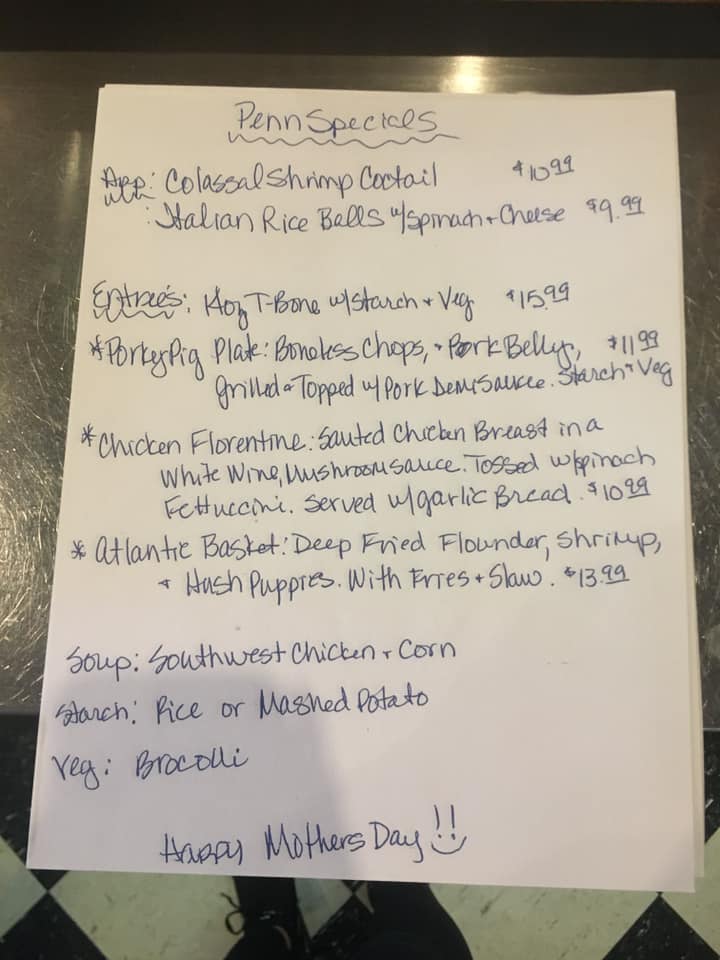 Penn Specials
App: Colassal Shrimp Coctail $10.99
: Italian Rice Balls w/spinach + Cheese $9.99
Entree's: 14oz T-Bone w/Starch + Veg $15.99
*Porky Pig Plate: Boneless Chops, + Pork Belly, $11.99
Grilled + Topped w/ Pork Demi Sauce. Starch + Veg
*Chicken Florentine: Sauted Chicken Breast in a
White Wine, Mushroom Sauce. Tossed w/spinach
Fettuccini. Served w/garlic Bread. $10.99
* Atlantic Basket: Deep Fried Flounder, Shrimp,
+ Hush Puppies. With Fries + Slaw. $13.99
Soup: Southwest Chicken + Corn
Starch: Rice or Mashed Potato
Veg: Brocolli
Happy Mothers Day!!